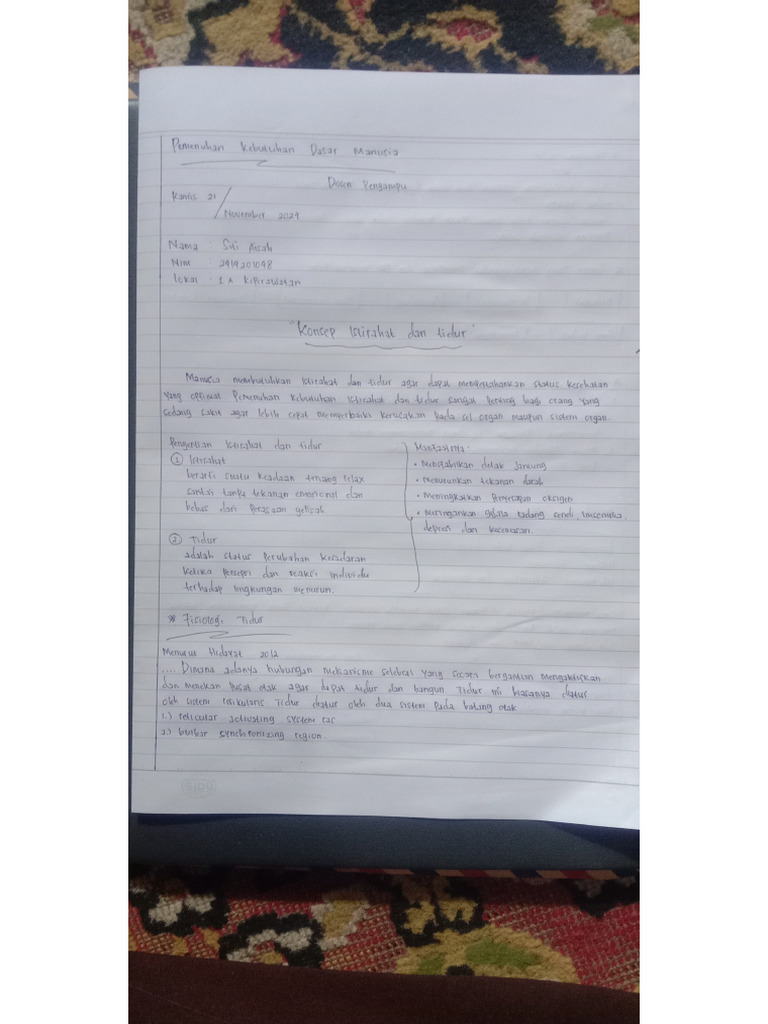 Pemenuhan Kebutuhan Dasar Manusia
Dosen Pengampu
Kamis 21 / November 2024
Nama : Siti Aisah
Nim : 2419201048
Lokal : 1 A Keperawatan
"Konsep Istirahat dan tidur"
Manusia membutuhkan istirahat dan tidur agar dapat mempertahankan status kesehatan
yang optimal Pemenuhan kebutuhan istirahat dan tidur sangat penting bagi orang yang
sedang sakit agar lebih cepat memperbaiki kerusakan pada sel organ maupun sistem organ.
Pengertian istirahat dan tidur
① Istirahat
berarti suatu keadaan tenang relax
santai tanpa tekanan emosional dan
bebas dari perasaan gelisah
② Tidur
adalah status perubahan kesadaran
ketika persepsi dan reaksi individu
terhadap lingkungan menurun.
Manfaatnya:
• Menstabilkan detak jantung
• Menurunkan tekanan darah
• Meningkatkan penyerapan oksigen
• Meringankan gejala radang sendi, insomnia,
depresi dan kecemasan.
* Fisiologi Tidur
Menurut Hidayat 2012
.... Dimana adanya hubungan mekanisme selebral yang secara bergantian mengaktifkan
dan menekan pusat otak agar dapat tidur dan bangun Tidur ini biasanya diatur
oleh sistem Tidur diatur oleh dua sistem pada batang otak
1.) reticular activating system
2.) bulbar synchronizing region.
SIDU